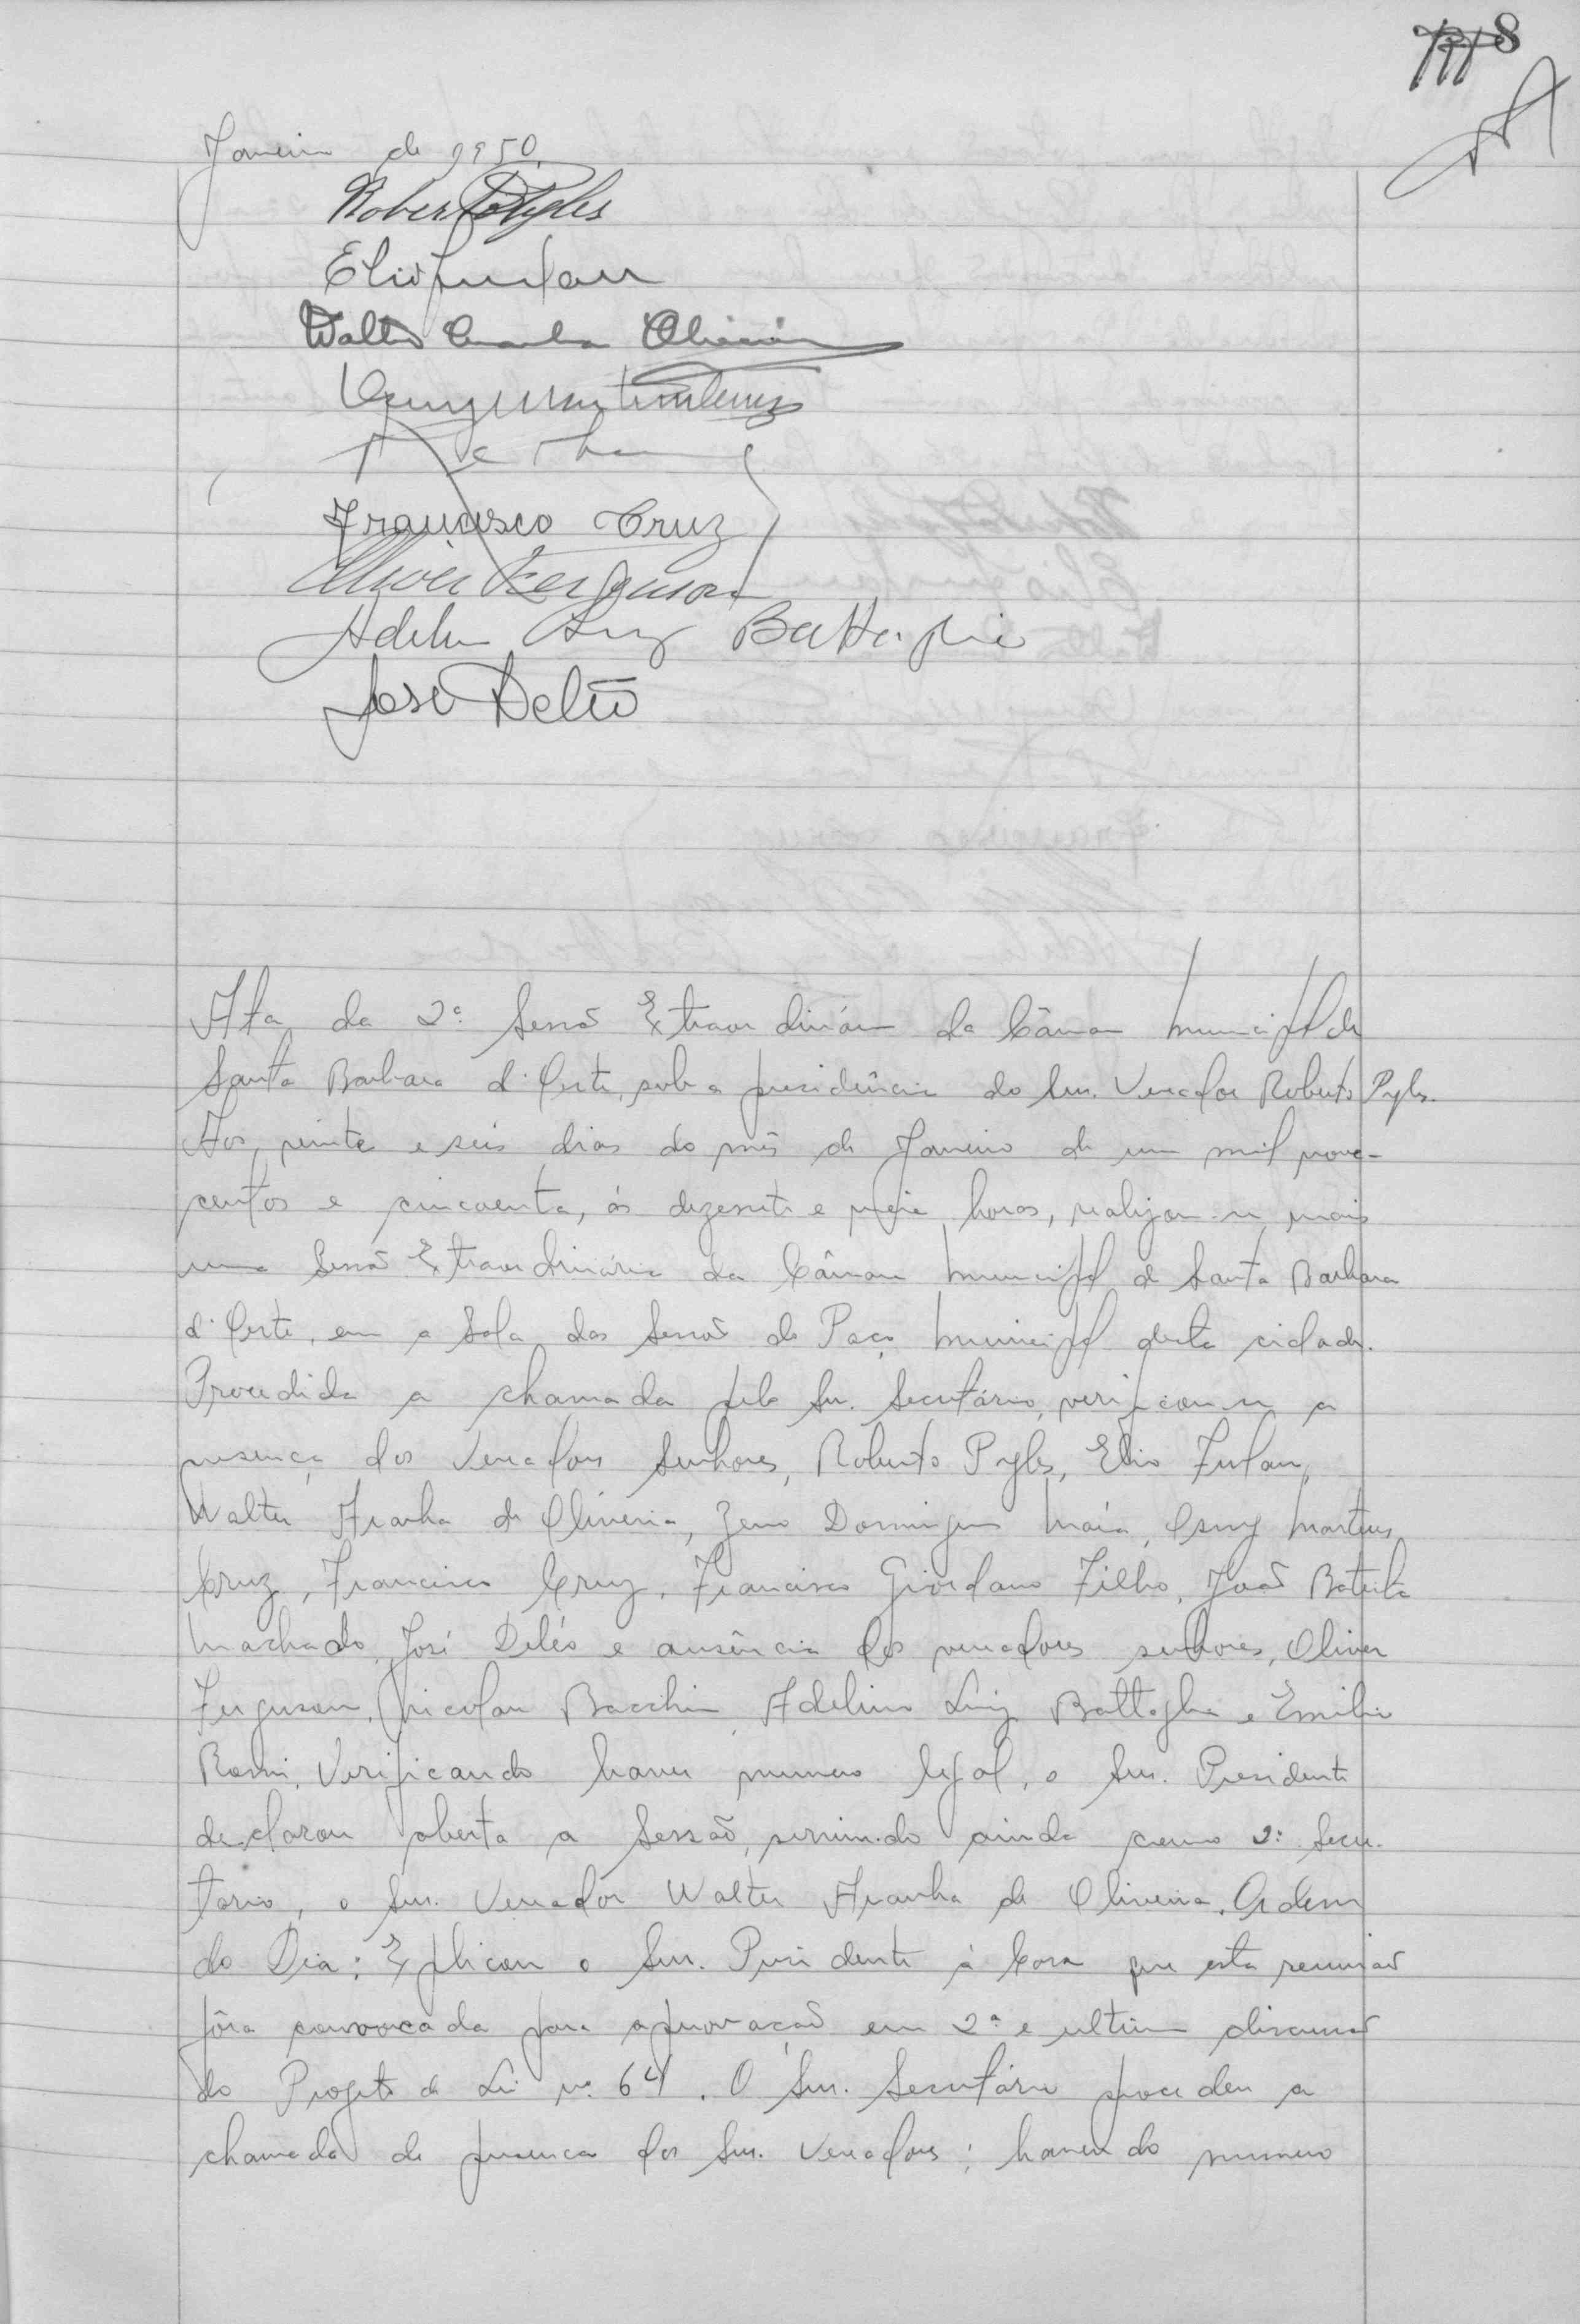 8
Janeiro de 1950.
Roberto Pyles
Elio Furlan
Walter Aranha Oliveira
Osny Martins Cruz
Francisco Cruz
Oliver Ferguson
Adelino Luiz Battaglia
José Deléo
Ata da 2ª Sessão Extraordinária da Câmara Municipal de
Santa Barbara d'Oeste, sob a presidência do Snr. Vereador Roberto Pyles.
Aos, vinte e seis dias do mês de Janeiro de um mil nove-
centos e cincoenta, ás dezessete e meia horas, realizou-se mais
uma Sessão Extraordinária da Câmara Municipal de Santa Barbara
d'Oeste, em a Sala das Sessões do Paço Municipal desta cidade.
Procedida a chamada pelo Sr. Secretário, verificou-se a
presença dos Vereadores Senhores, Roberto Pyles, Elio Furlan,
Walter Aranha de Oliveira, Zeno Domingues Maia, Osny Martins
Cruz, Francisco Cruz, Francisco Giordano Filho, João Batista
Machado, José Deléo e ausência dos vereadores senhores, Oliver
Ferguson, Nicolau Bacchin, Adelino Luiz Battaglia e Emilio
Romi. Verificando haver numero legal, o Snr. Presidente
declarou aberta a Sessão, servindo ainda como 2º Secre-
tario, o Snr. Vereador Walter Aranha de Oliveira. Ordem
do Dia: Explicou o Snr. Presidente á Casa que esta reunião
fôra convocada para aprovação em 2ª e ultima discussão
do Projeto de Lei nº 64. O Snr. Secretário procedeu a
chamada de presença dos Snr. Vereadores; havendo numero